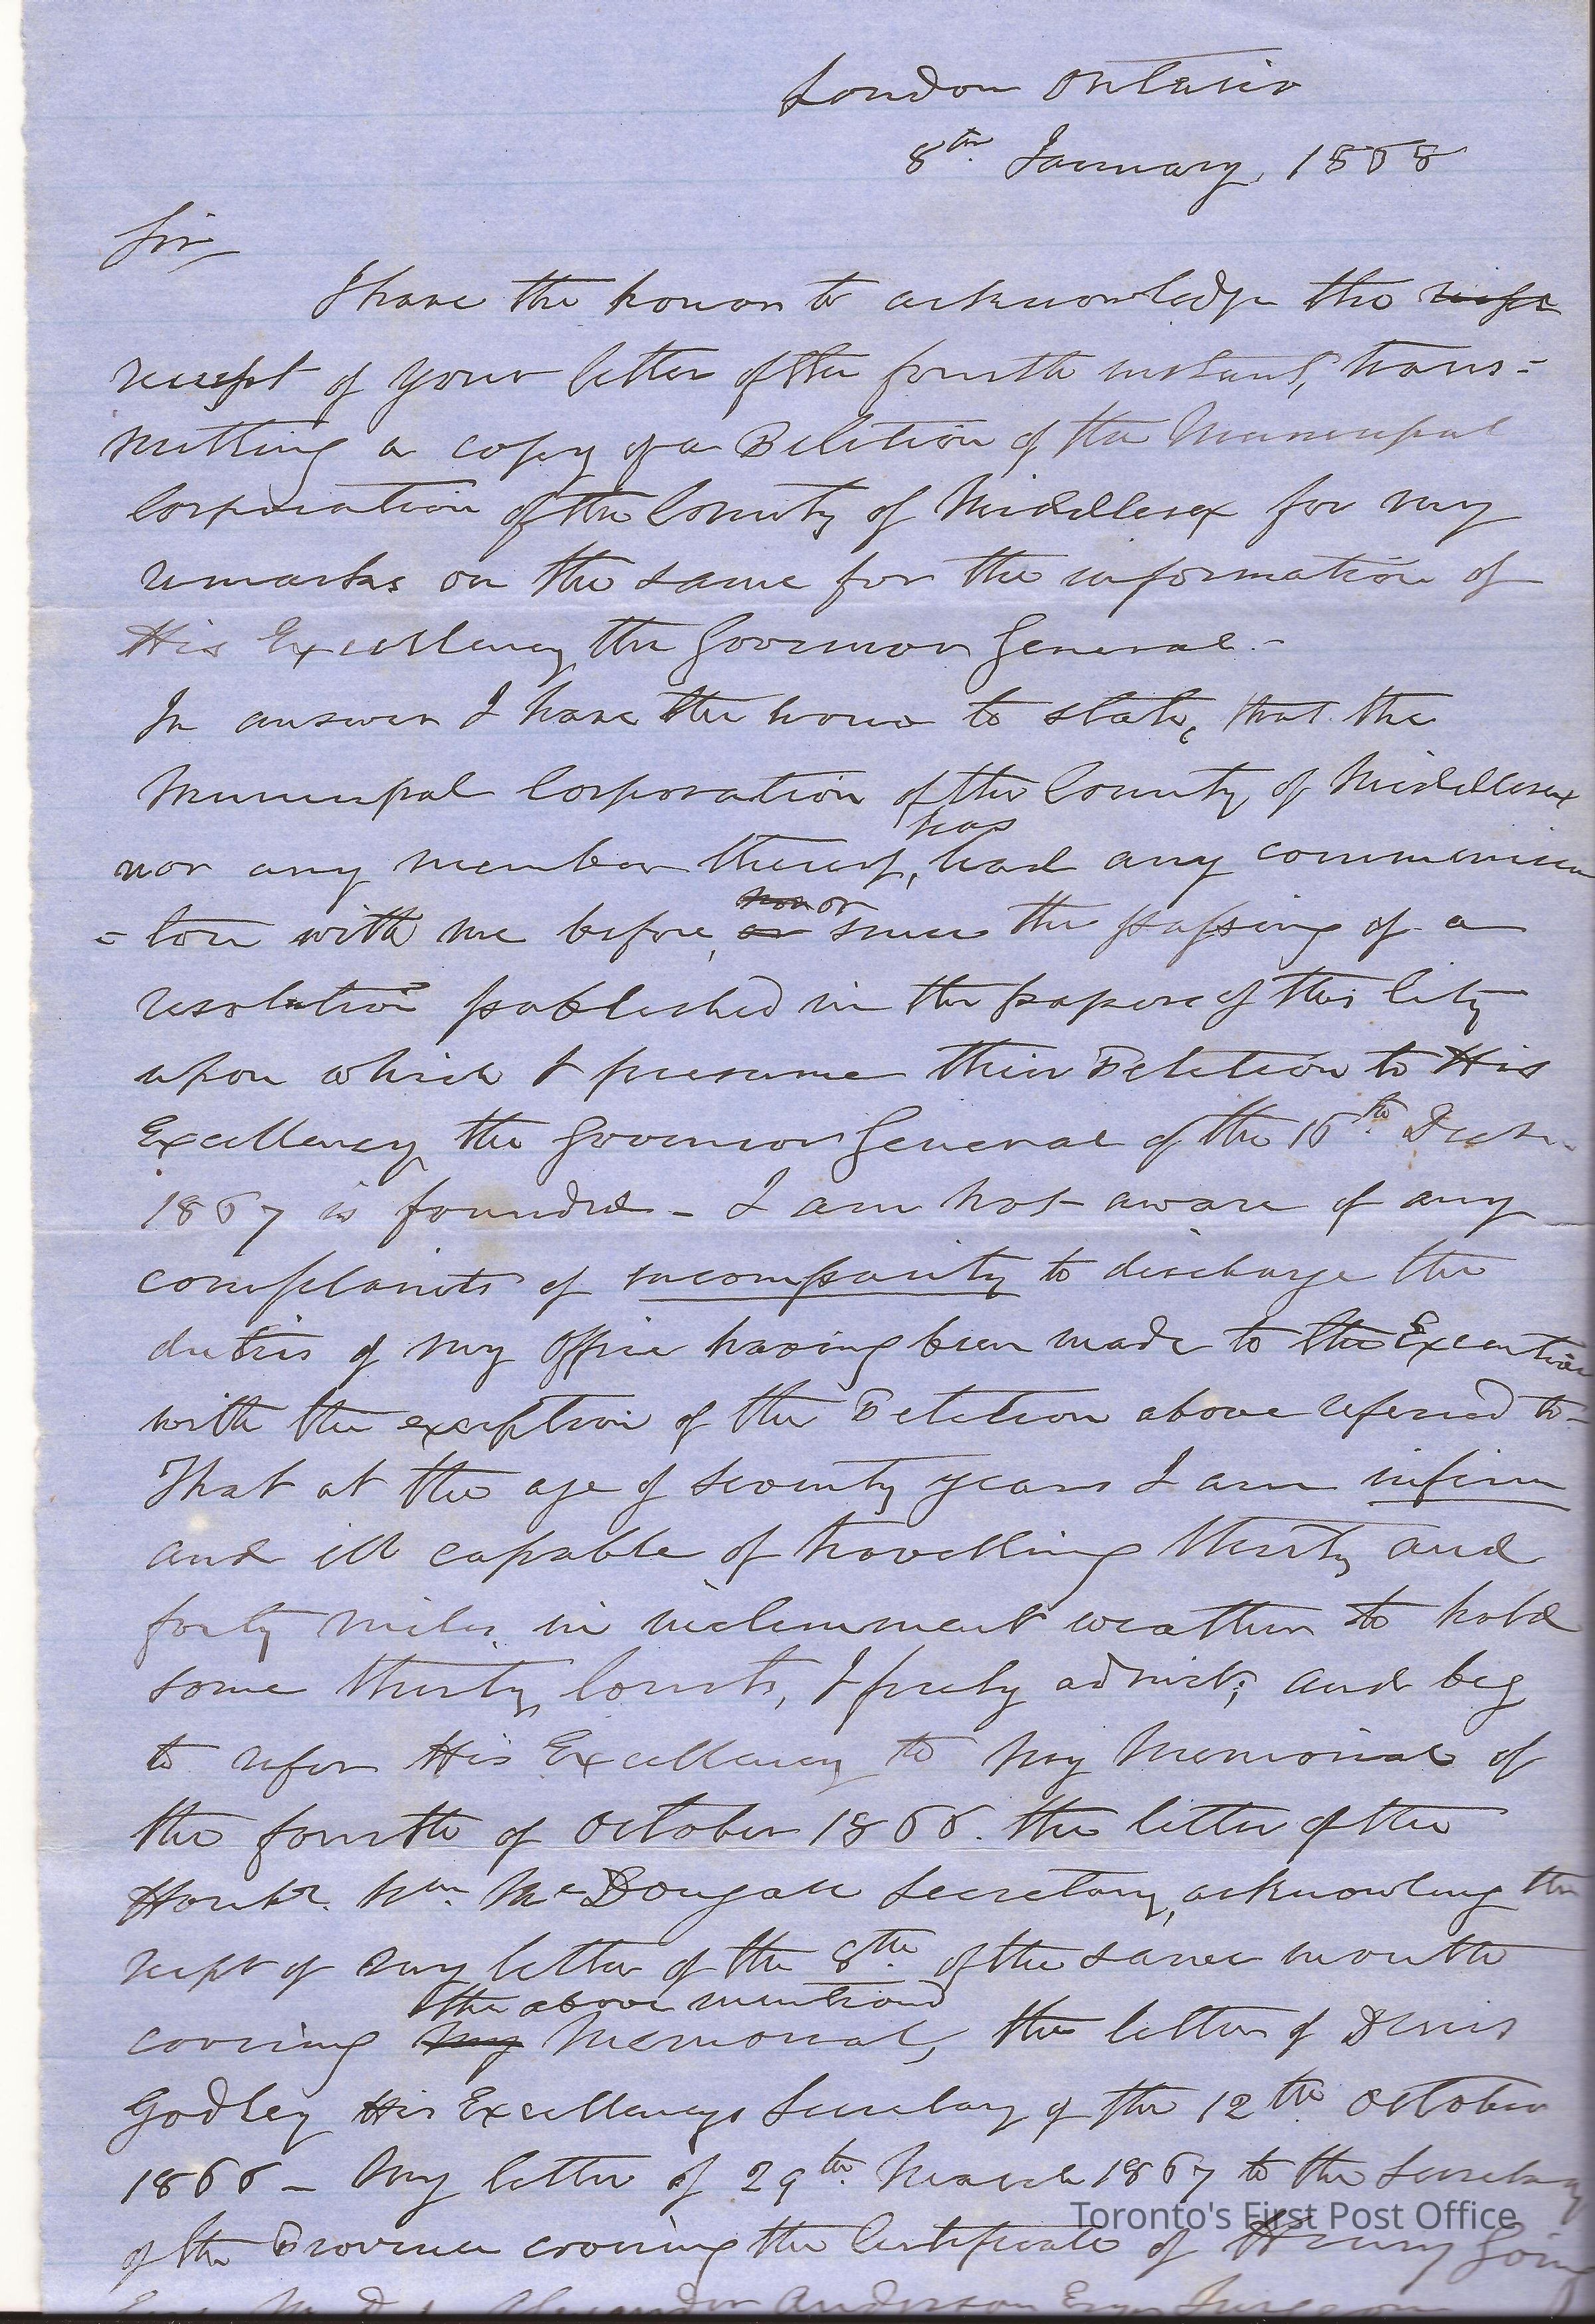 London Ontario
8th January, 1868
Sir,
I have the honor to acknowledge the
receipt of your letter of the fourth instant, trans=
mitting a copy of a Petition of the Municipal
Corporation of the County of Middlesex for my
remarks on the same for the information of
His Excellency the Governor General.-
In answer I have the honor to state, that the
Municipal Corporation of the County of Middlesex
has
nor any member thereof, had any communica
nor or
=tion with me before, or since the passing of a
resolution published in the papers of this City
upon which I presume their Petition to His
Excellency the Governor General of the 16th Decr.
1867 is founded - I am not aware of any
complaints of incompacity to discharge the
duties of my Office having been made to the Executive
with the exception of the Petition above referred to=
That at the age of seventy years I am infirm
and ill capable of travelling thirty and
forty miles in inclemment weather to hold
some thirty Courts, I freely admit; and beg
to refer His Excellency to my Memorial of
the fourth of October 1866. the letter of the
Honble. Wm. McDougall Secretary, acknowling the
recipt of my letter of the 8th. of the same month
the above mentioned
covering my Memorial, the letter of Denis
Godley His Excellencys Secretary of the 12th October
1866 - My letter of 29th. March 1867 to the Secretary
of the Province covering the Certificate of Henry Going
Alexander Anderson Esqr Surgeon
Toronto's First Post Office